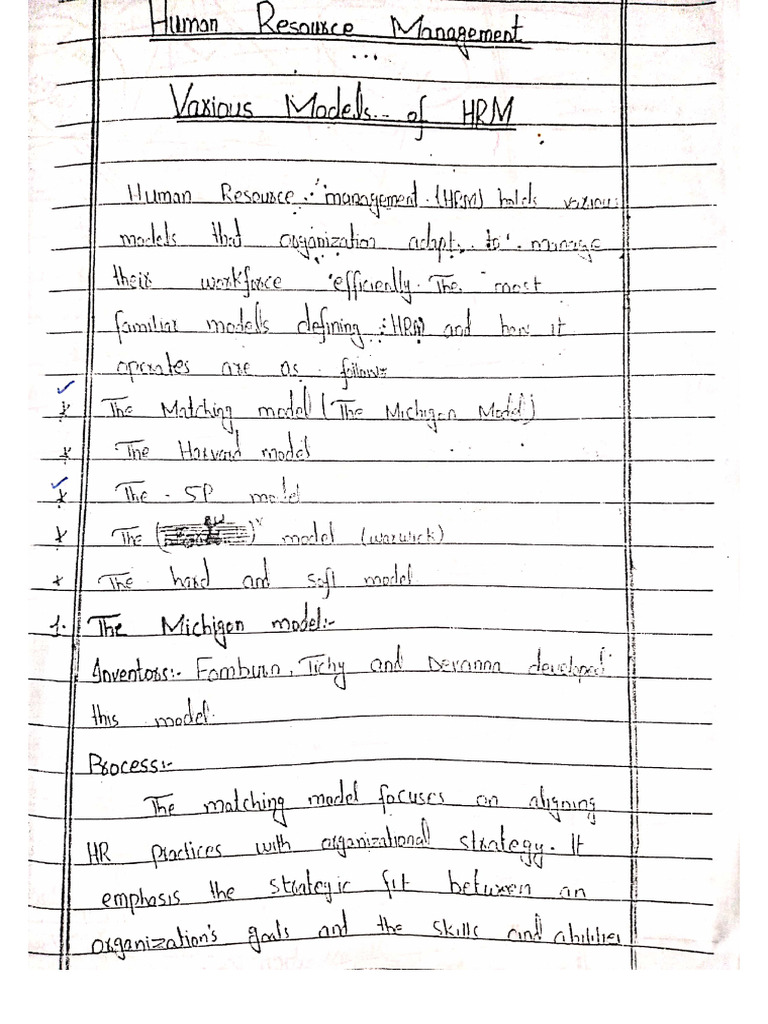 Human Resource Management
Various Models of HRM
Human Resource management (HRM) holds various
models that organization adapt to manage
their workforce efficiently. The most
familiar models defining HRM and how it
operates are as follow:
* The Matching model (The Michigan Model)
* The Harvard model
* The 5P model
* The model (warwick)
* The hard and soft model
1. The Michigan model:-
Inventors:- Fomburn, Tichy and Devanna developed
this model.
Process:-
The matching model focuses on aligning
HR practices with organizational strategy. It
emphasis the strategic fit between an
organization's goals and the skills and abilities